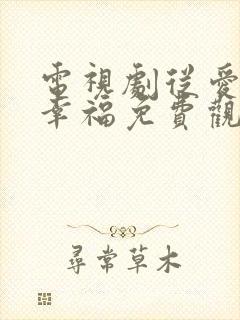 電視劇從愛
幸福免費觀
尋常草木